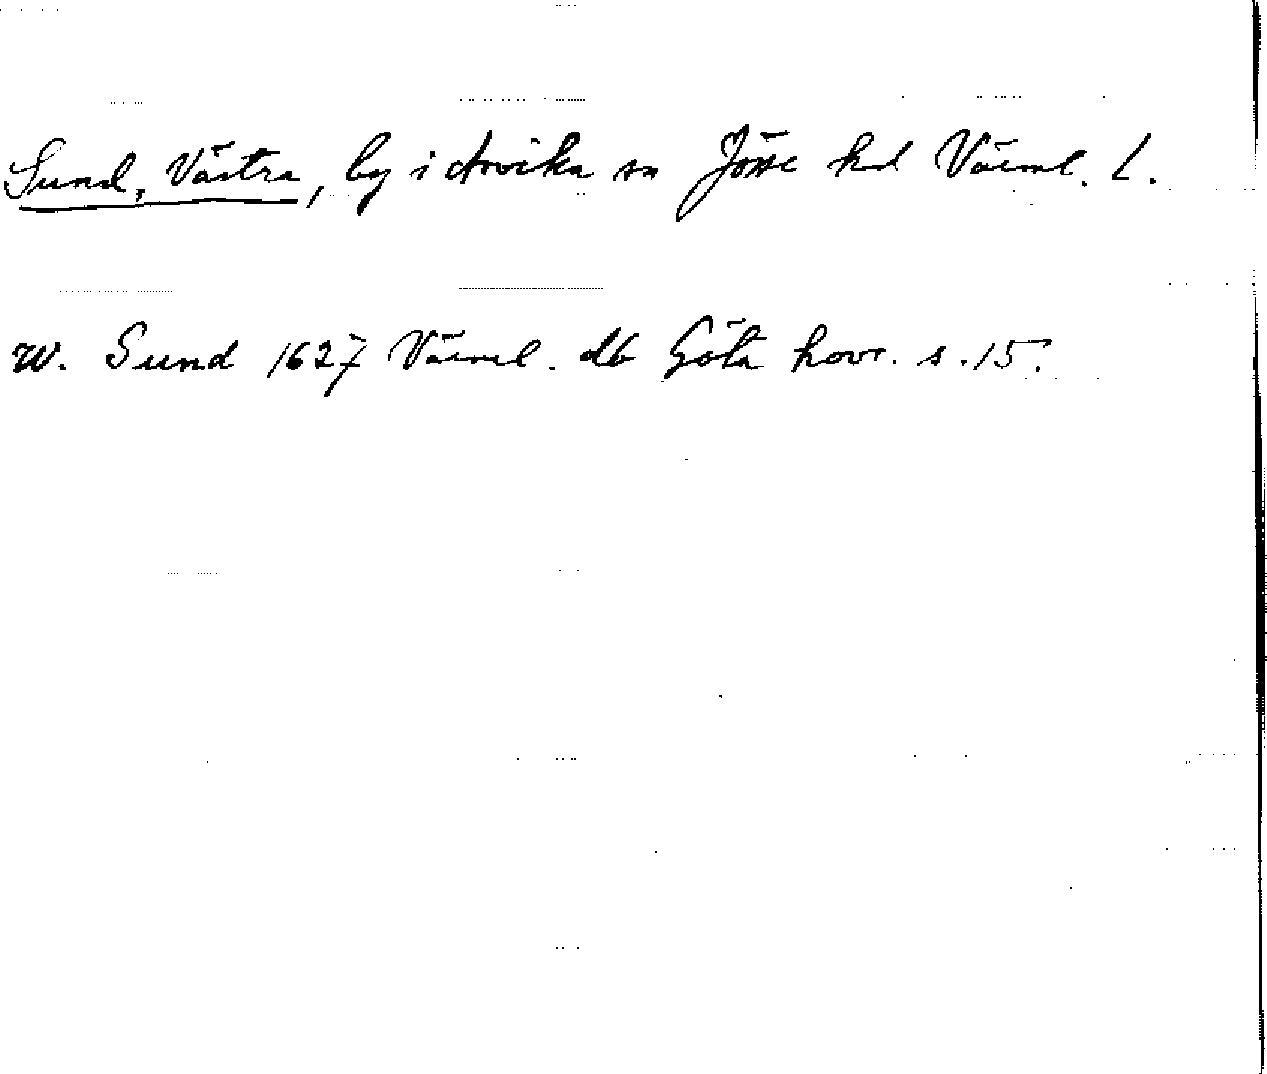 Sund, Västra, by i Arvika sn Jösse hd Värml. l.
w. Sund 1627 Värml. db Göta hovr. s. 15.